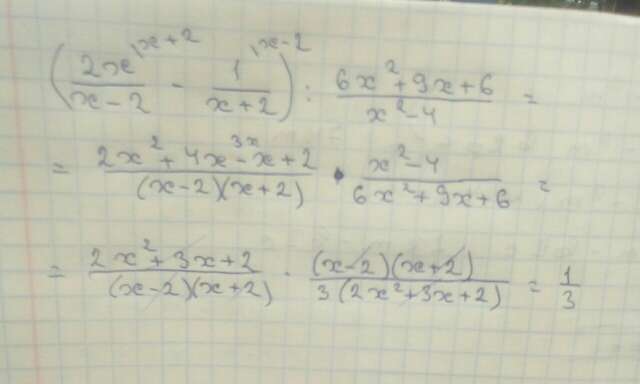 (2x/(x-2) \x+2 - 1/(x+2) \x-2) : (6x²+9x+6)/(x²-4) =
= (2x²+4x-x+2)/((x-2)(x+2)) 3x · (x²-4)/(6x²+9x+6) =
= (2x²+3x+2)/((x-2)(x+2)) · ((x-2)(x+2))/(3(2x²+3x+2)) = 1/3